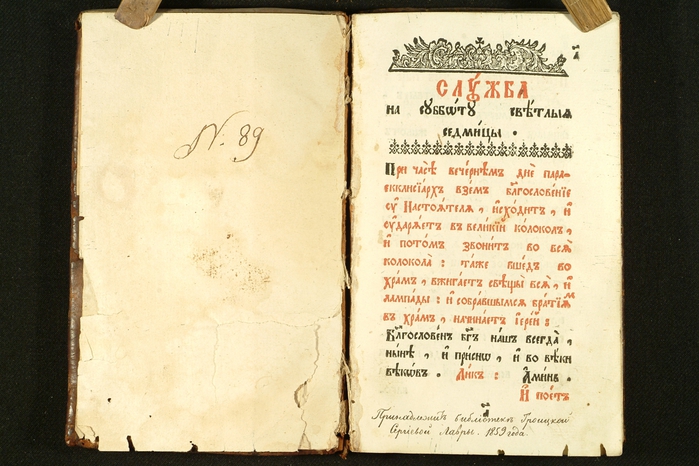 № 89
СЛꙊ́ЖБА
НА СꙊББѠ́ТꙊ СВѢ́ТЛЫѦ
СЕДМИ́ЦЫ .
При часѣ̀ вече́рнѣмъ днѐ пара-
екклисїа́рхъ взе́мъ блгⷭ҇ове́нїе
ѿ Настоѧ́телѧ , и҆схо́дитъ , и҆
оу҆дарѧ́етъ въ вели́кїй ко́локолъ ,
и҆ пото́мъ звони́тъ во всѧ̑
колокола̀ : та́же вше́дъ во
хра́мъ , вжига́етъ свѣщы̀ всѧ̑ , и҆
лампа́ды : и҆ собра́вшымсѧ бра́тїѧмъ
въ хра́мъ , начина́етъ і҆ере́й :
Благослове́нъ бг҃ъ на́шъ всегда̀ ,
ны́нѣ , и҆ при́снѡ , и҆ во вѣ́ки
вѣкѡ́въ . Ли́къ : А҆ми́нь .
И҆ пою́тъ
Принадлежитъ библіотекѣ Троицкой
Сергіевой Лавры. 1859 года.